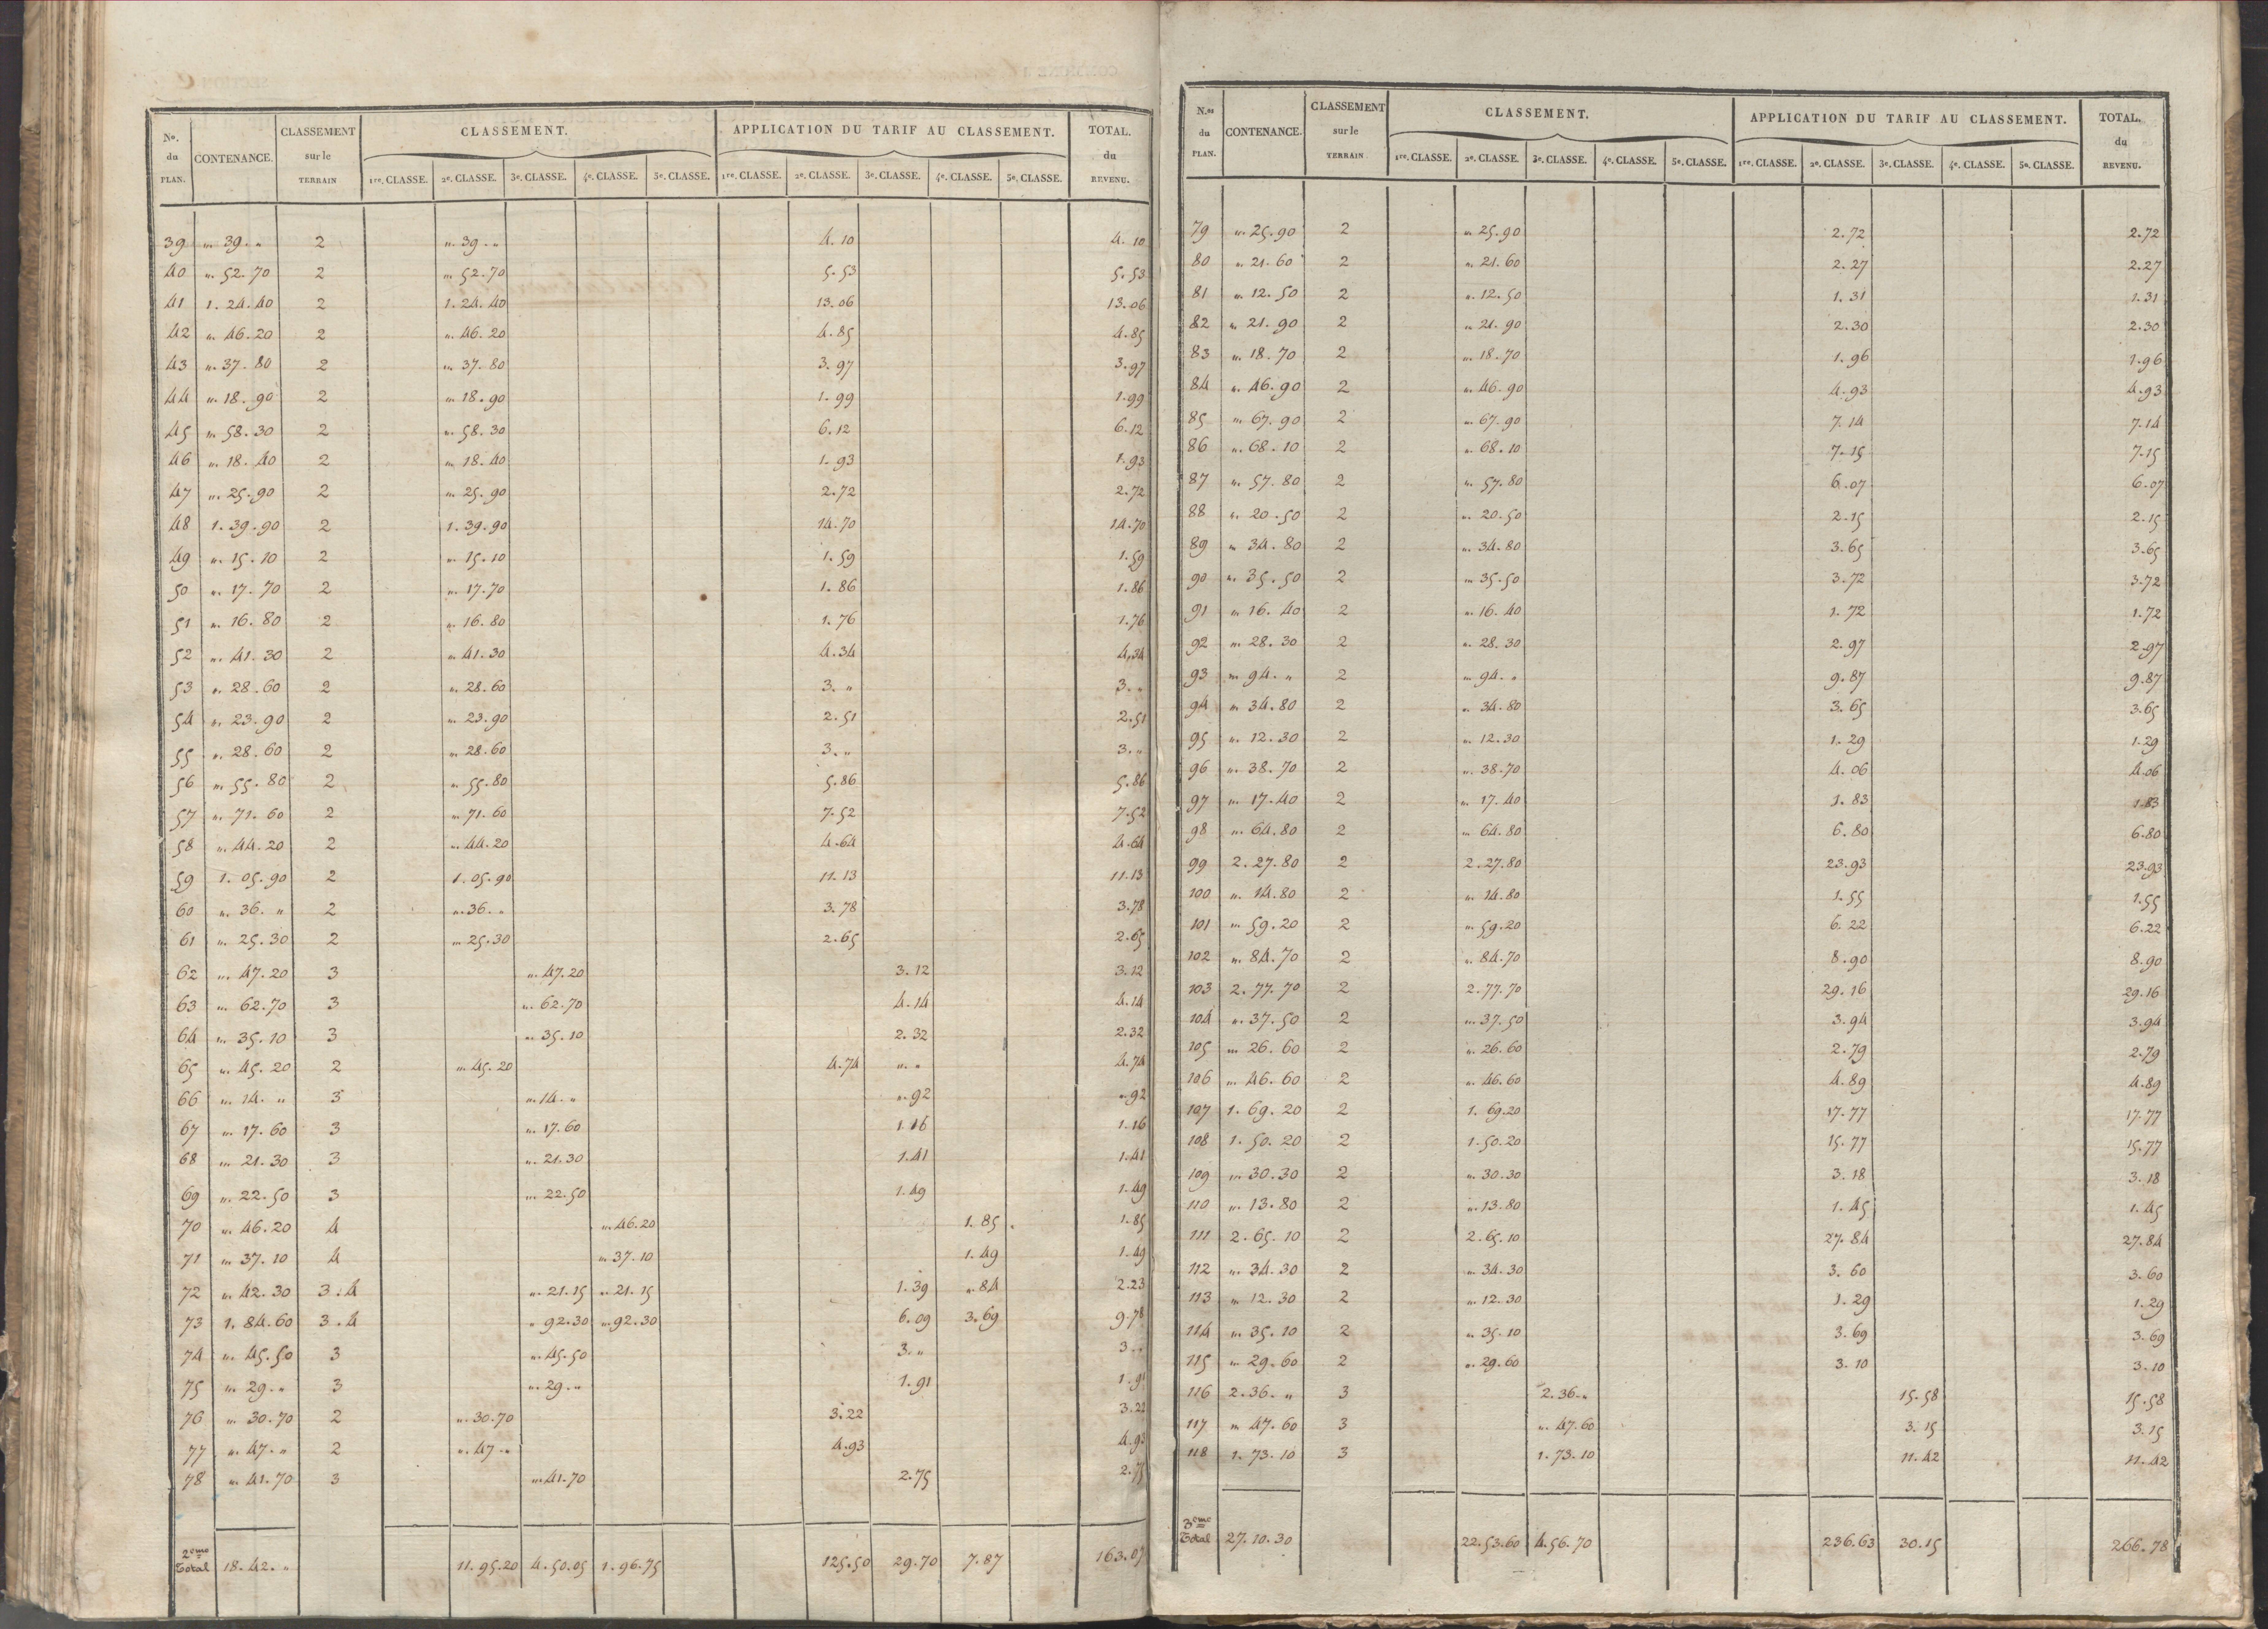 No. du PLAN. CONTENANCE. CLASSEMENT sur le TERRAIN CLASSEMENT. APPLICATION DU TARIF AU CLASSEMENT. TOTAL. du REVENU.
1re. CLASSE. 2e. CLASSE. 3e. CLASSE. 4e. CLASSE. 5e. CLASSE. 1re. CLASSE. 2e. CLASSE. 3e. CLASSE. 4e. CLASSE. 5e. CLASSE.
39 ". 39. " 2 ". 39. " 4. 10 4. 10
40 ". 52. 70 2 ". 52. 70 5. 53 5. 53
41 1. 24. 40 2 1. 24. 40 13. 06 13. 06
42 ". 46. 20 2 ". 46. 20 4. 85 4. 85
43 ". 37. 80 2 ". 37. 80 3. 97 3. 97
44 ". 18. 90 2 ". 18. 90 1. 99 1. 99
45 ". 58. 30 2 ". 58. 30 6. 12 6. 12
46 ". 18. 40 2 ". 18. 40 1. 93 1. 93
47 ". 25. 90 2 ". 25. 90 2. 72 2. 72
48 1. 39. 90 2 1. 39. 90 14. 70 14. 70
49 ". 15. 10 2 ". 15. 10 1. 59 1. 59
50 ". 17. 70 2 ". 17. 70 1. 86 1. 86
51 ". 16. 80 2 ". 16. 80 1. 76 1. 76
52 ". 41. 30 2 ". 41. 30 4. 34 4. 34
53 ". 28. 60 2 ". 28. 60 3. " 3. "
54 ". 23. 90 2 ". 23. 90 2. 51 2. 51
55 ". 28. 60 2 ". 28. 60 3. " 3. "
56 ". 55. 80 2 ". 55. 80 5. 86 5. 86
57 ". 71. 60 2 ". 71. 60 7. 52 7. 52
58 ". 44. 20 2 ". 44. 20 4. 64 4. 64
59 1. 05. 90 2 1. 05. 90 11. 13 11. 13
60 ". 36. " 2 ". 36. " 3. 78 3. 78
61 ". 25. 30 2 ". 25. 30 2. 65 2. 65
62 ". 47. 20 3 ". 47. 20 3. 12 3. 12
63 ". 62. 70 3 ". 62. 70 4. 14 4. 14
64 ". 35. 10 3 ". 35. 10 2. 32 2. 32
65 ". 45. 20 2 ". 45. 20 4. 74 ". " 4. 74
66 ". 14. " 3 ". 14. " ". 92 ". 92
67 ". 17. 60 3 ". 17. 60 1. 16 1. 16
68 ". 21. 30 3 ". 21. 30 1. 41 1. 41
69 ". 22. 50 3 ". 22. 50 1. 49 1. 49
70 ". 46. 20 4 ". 46. 20 1. 85 1. 85
71 ". 37. 10 4 ". 37. 10 1. 49 1. 49
72 ". 42. 30 3. 4 ". 21. 15 ". 21. 15 1. 39 ". 84 2. 23
73 1. 84. 60 3. 4 ". 92. 30 ". 92. 30 6. 09 3. 69 9. 78
74 ". 45. 50 3 ". 45. 50 3. " 3. "
75 ". 29. " 3 ". 29. " 1. 91 1. 91
76 ". 30. 70 2 ". 30. 70 3. 22 3. 22
77 ". 47. " 2 ". 47. " 4. 93 4. 93
78 ". 41. 70 3 ". 41. 70 2. 75 2. 75
2eme Total 18. 42. " 11. 95. 20 4. 50. 05 1. 96. 75 125. 50 29. 70 7. 87 163. 07
N.os du PLAN. CONTENANCE. CLASSEMENT sur le TERRAIN CLASSEMENT. APPLICATION DU TARIF AU CLASSEMENT. TOTAL. du REVENU.
1re. CLASSE. 2e. CLASSE. 3e. CLASSE. 4e. CLASSE. 5e. CLASSE. 1re. CLASSE. 2e. CLASSE. 3e. CLASSE. 4e. CLASSE. 5e. CLASSE.
79 ". 25. 90 2 ". 25. 90 2. 72 2. 72
80 ". 21. 60 2 ". 21. 60 2. 27 2. 27
81 ". 12. 50 2 ". 12. 50 1. 31 1. 31
82 ". 21. 90 2 ". 21. 90 2. 30 2. 30
83 ". 18. 70 2 ". 18. 70 1. 96 1. 96
84 ". 46. 90 2 ". 46. 90 4. 93 4. 93
85 ". 67. 90 2 ". 67. 90 7. 14 7. 14
86 ". 68. 10 2 ". 68. 10 7. 15 7. 15
87 ". 57. 80 2 ". 57. 80 6. 07 6. 07
88 ". 20. 50 2 ". 20. 50 2. 15 2. 15
89 ". 34. 80 2 ". 34. 80 3. 65 3. 65
90 ". 35. 50 2 ". 35. 50 3. 72 3. 72
91 ". 16. 40 2 ". 16. 40 1. 72 1. 72
92 ". 28. 30 2 ". 28. 30 2. 97 2. 97
93 ". 94. " 2 ". 94. " 9. 87 9. 87
94 ". 34. 80 2 ". 34. 80 3. 65 3. 65
95 ". 12. 30 2 ". 12. 30 1. 29 1. 29
96 ". 38. 70 2 ". 38. 70 4. 06 4. 06
97 ". 17. 40 2 ". 17. 40 1. 83 1. 83
98 ". 64. 80 2 ". 64. 80 6. 80 6. 80
99 2. 27. 80 2 2. 27. 80 23. 93 23. 93
100 ". 14. 80 2 ". 14. 80 1. 55 1. 55
101 ". 59. 20 2 ". 59. 20 6. 22 6. 22
102 ". 84. 70 2 ". 84. 70 8. 90 8. 90
103 2. 77. 70 2 2. 77. 70 29. 16 29. 16
104 ". 37. 50 2 ". 37. 50 3. 94 3. 94
105 ". 26. 60 2 ". 26. 60 2. 79 2. 79
106 ". 46. 60 2 ". 46. 60 4. 89 4. 89
107 1. 69. 20 2 1. 69. 20 17. 77 17. 77
108 1. 50. 20 2 1. 50. 20 15. 77 15. 77
109 ". 30. 30 2 ". 30. 30 3. 18 3. 18
110 ". 13. 80 2 ". 13. 80 1. 45 1. 45
111 2. 65. 10 2 2. 65. 10 27. 84 27. 84
112 ". 34. 30 2 ". 34. 30 3. 60 3. 60
113 ". 12. 30 2 ". 12. 30 1. 29 1. 29
114 ". 35. 10 2 ". 35. 10 3. 69 3. 69
115 ". 29. 60 2 ". 29. 60 3. 10 3. 10
116 2. 36. " 3 2. 36. " 15. 58 15. 58
117 ". 47. 60 3 ". 47. 60 3. 15 3. 15
118 1. 73. 10 3 1. 73. 10 11. 42 11. 42
3eme Total 27. 10. 30 22. 53. 60 4. 56. 70 236. 63 30. 15 266. 78